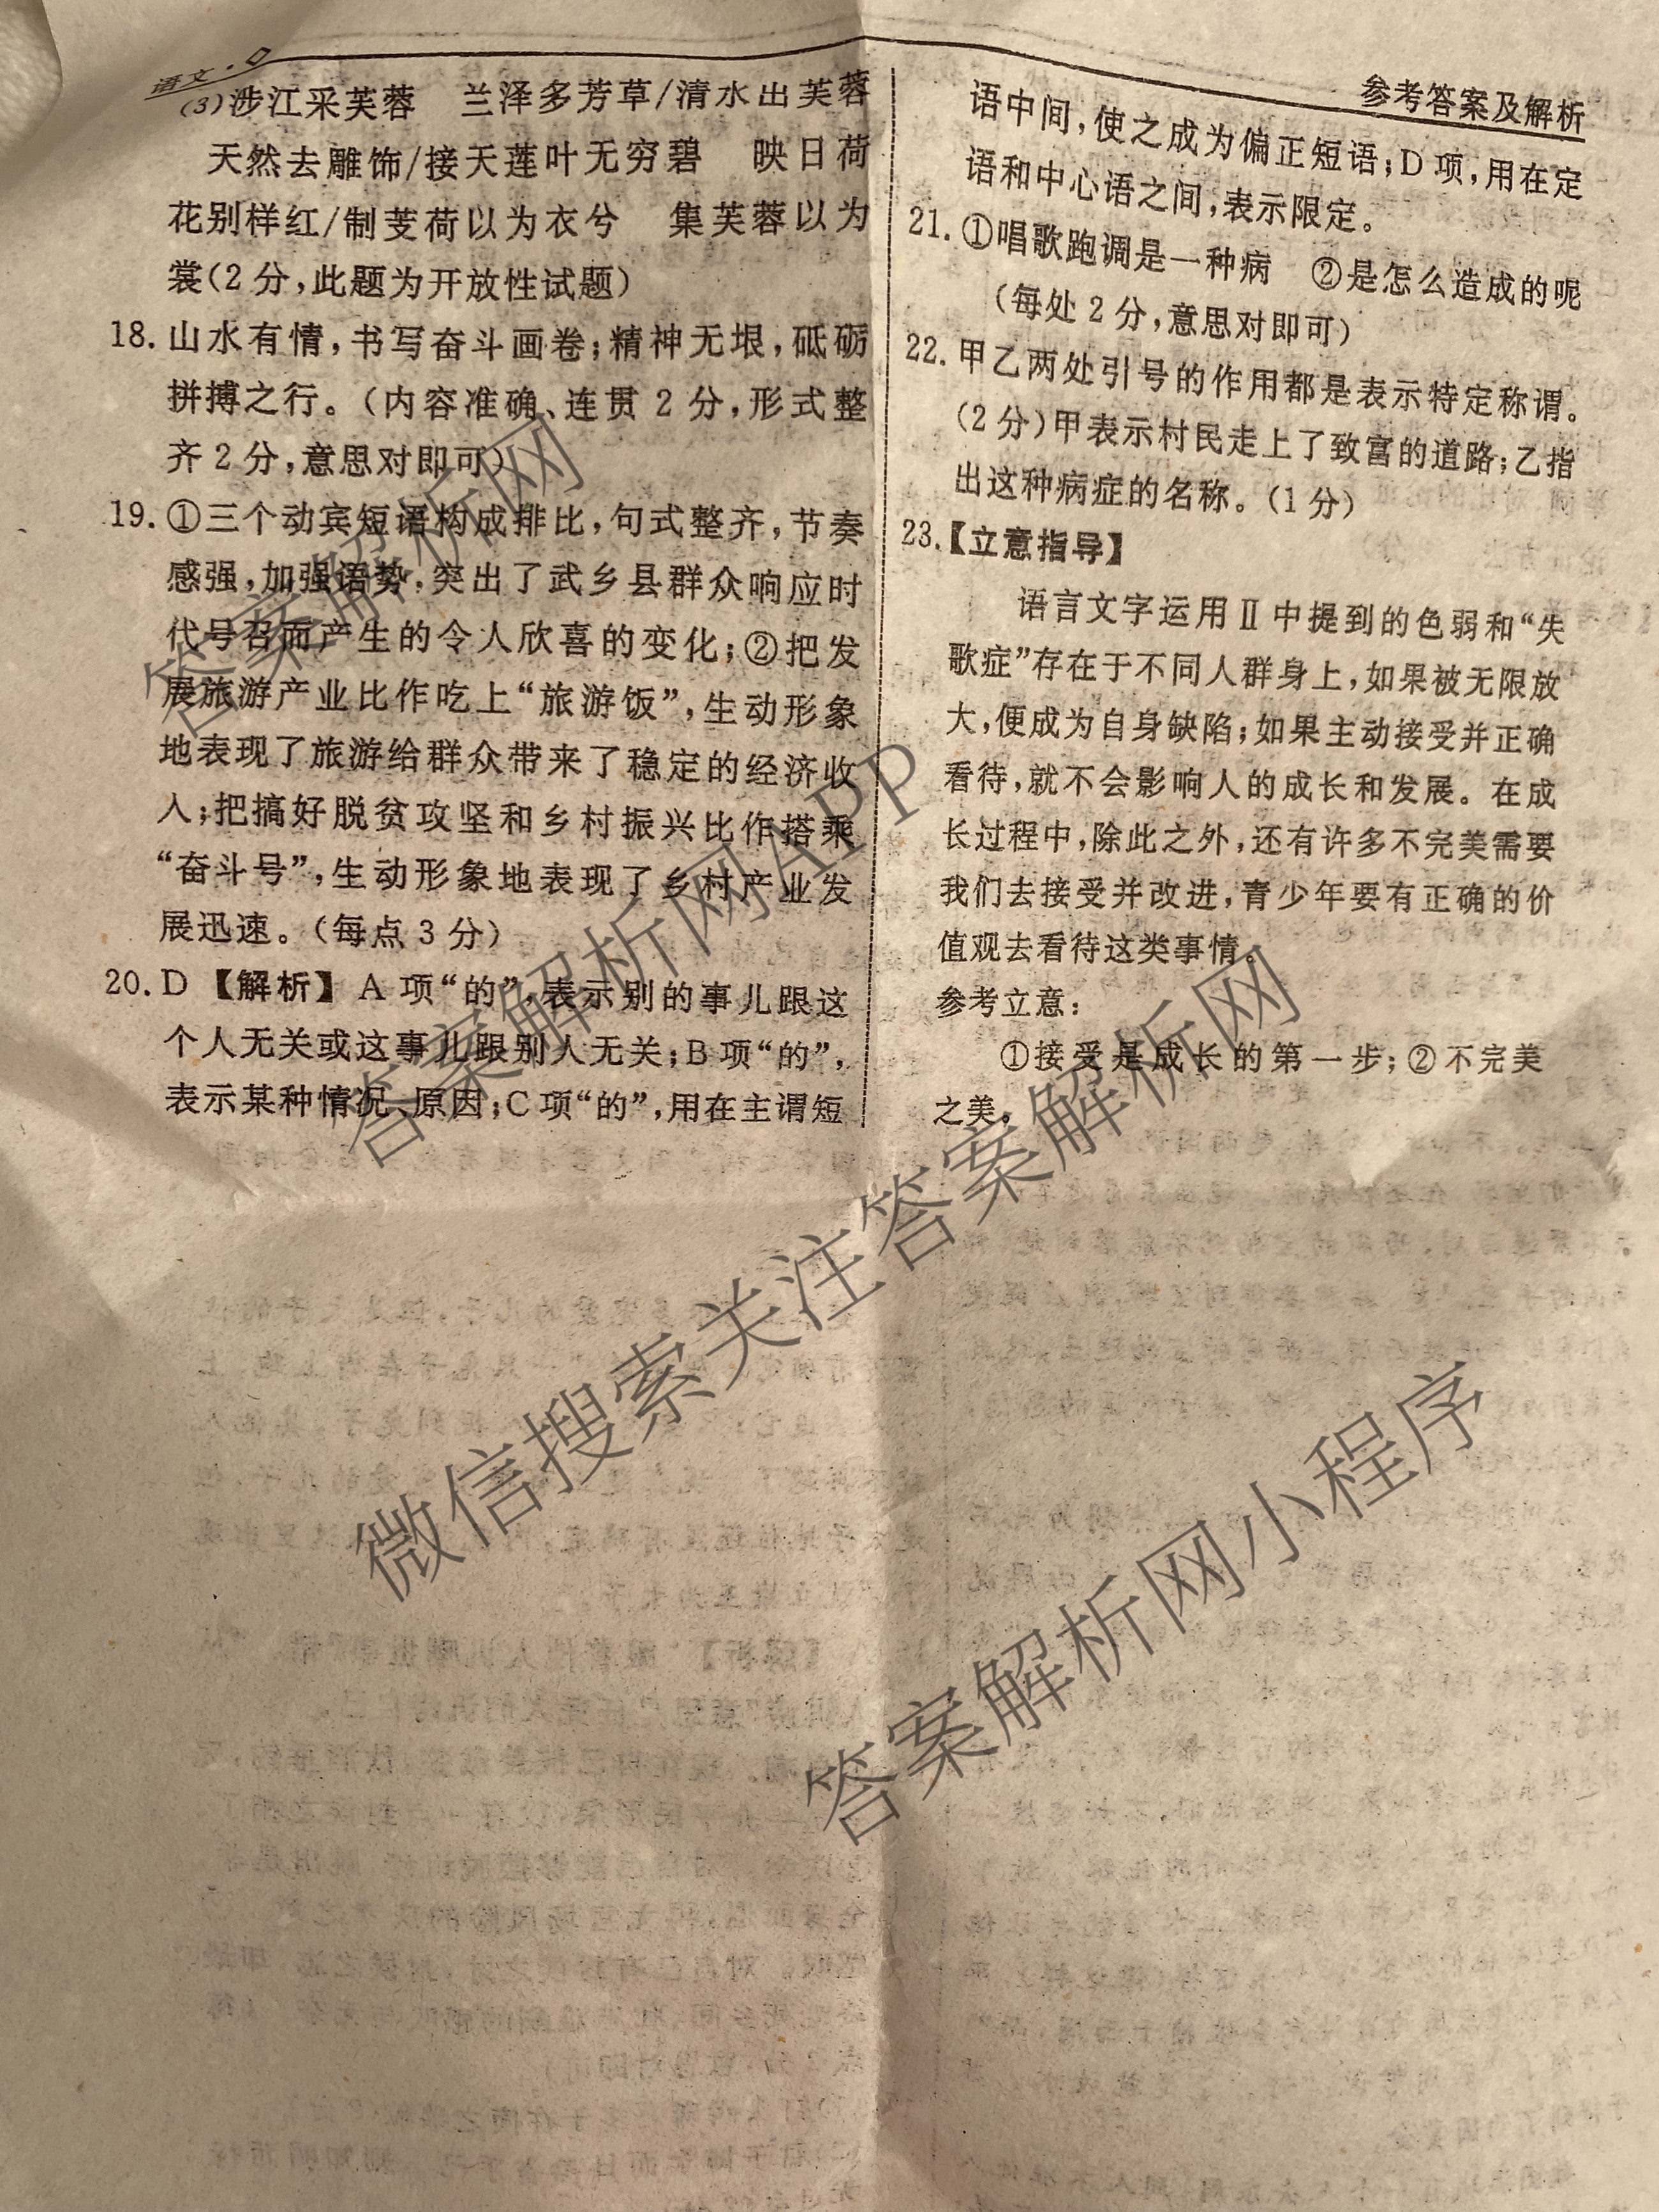 语文·
参考答案及解析
(3)涉江采芙蓉 兰泽多芳草/清水出芙蓉
天然去雕饰/接天莲叶无穷碧 映日荷
花别样红/制芰荷以为衣兮 集芙蓉以为
裳(2分,此题为开放性试题)
18.山水有情,书写奋斗画卷;精神无垠,砥砺
拼搏之行。(内容准确、连贯2分,形式整
齐2分,意思对即可)
19.①三个动宾短语构成排比,句式整齐,节奏
感强,加强语势,突出了武乡县群众响应时
代号召而产生的令人欣喜的变化;②把发
展旅游产业比作吃上“旅游饭”,生动形象
地表现了旅游给群众带来了稳定的经济收
入;把搞好脱贫攻坚和乡村振兴比作搭乘
“奋斗号”,生动形象地表现了乡村产业发
展迅速。(每点3分)
20.D 【解析】 A项“的”,表示别的事儿跟这
个人无关或这事儿跟别人无关;B项“的”,
表示某种情况、原因;C项“的”,用在主谓短
语中间,使之成为偏正短语;D项,用在定
语和中心语之间,表示限定。
21.①唱歌跑调是一种病 ②是怎么造成的呢
(每处2分,意思对即可)
22.甲乙两处引号的作用都是表示特定称谓。
(2分)甲表示村民走上了致富的道路;乙指
出这种病症的名称。(1分)
23.【立意指导】
语言文字运用Ⅱ中提到的色弱和“失
歌症”存在于不同人群身上,如果被无限放
大,便成为自身缺陷;如果主动接受并正确
看待,就不会影响人的成长和发展。在成
长过程中,除此之外,还有许多不完美需要
我们去接受并改进,青少年要有正确的价
值观去看待这类事情。
参考立意:
①接受是成长的第一步;②不完美
之美。
答案解析网
答案解析网APP
微信搜索关注答案解析网
答案解析网小程序